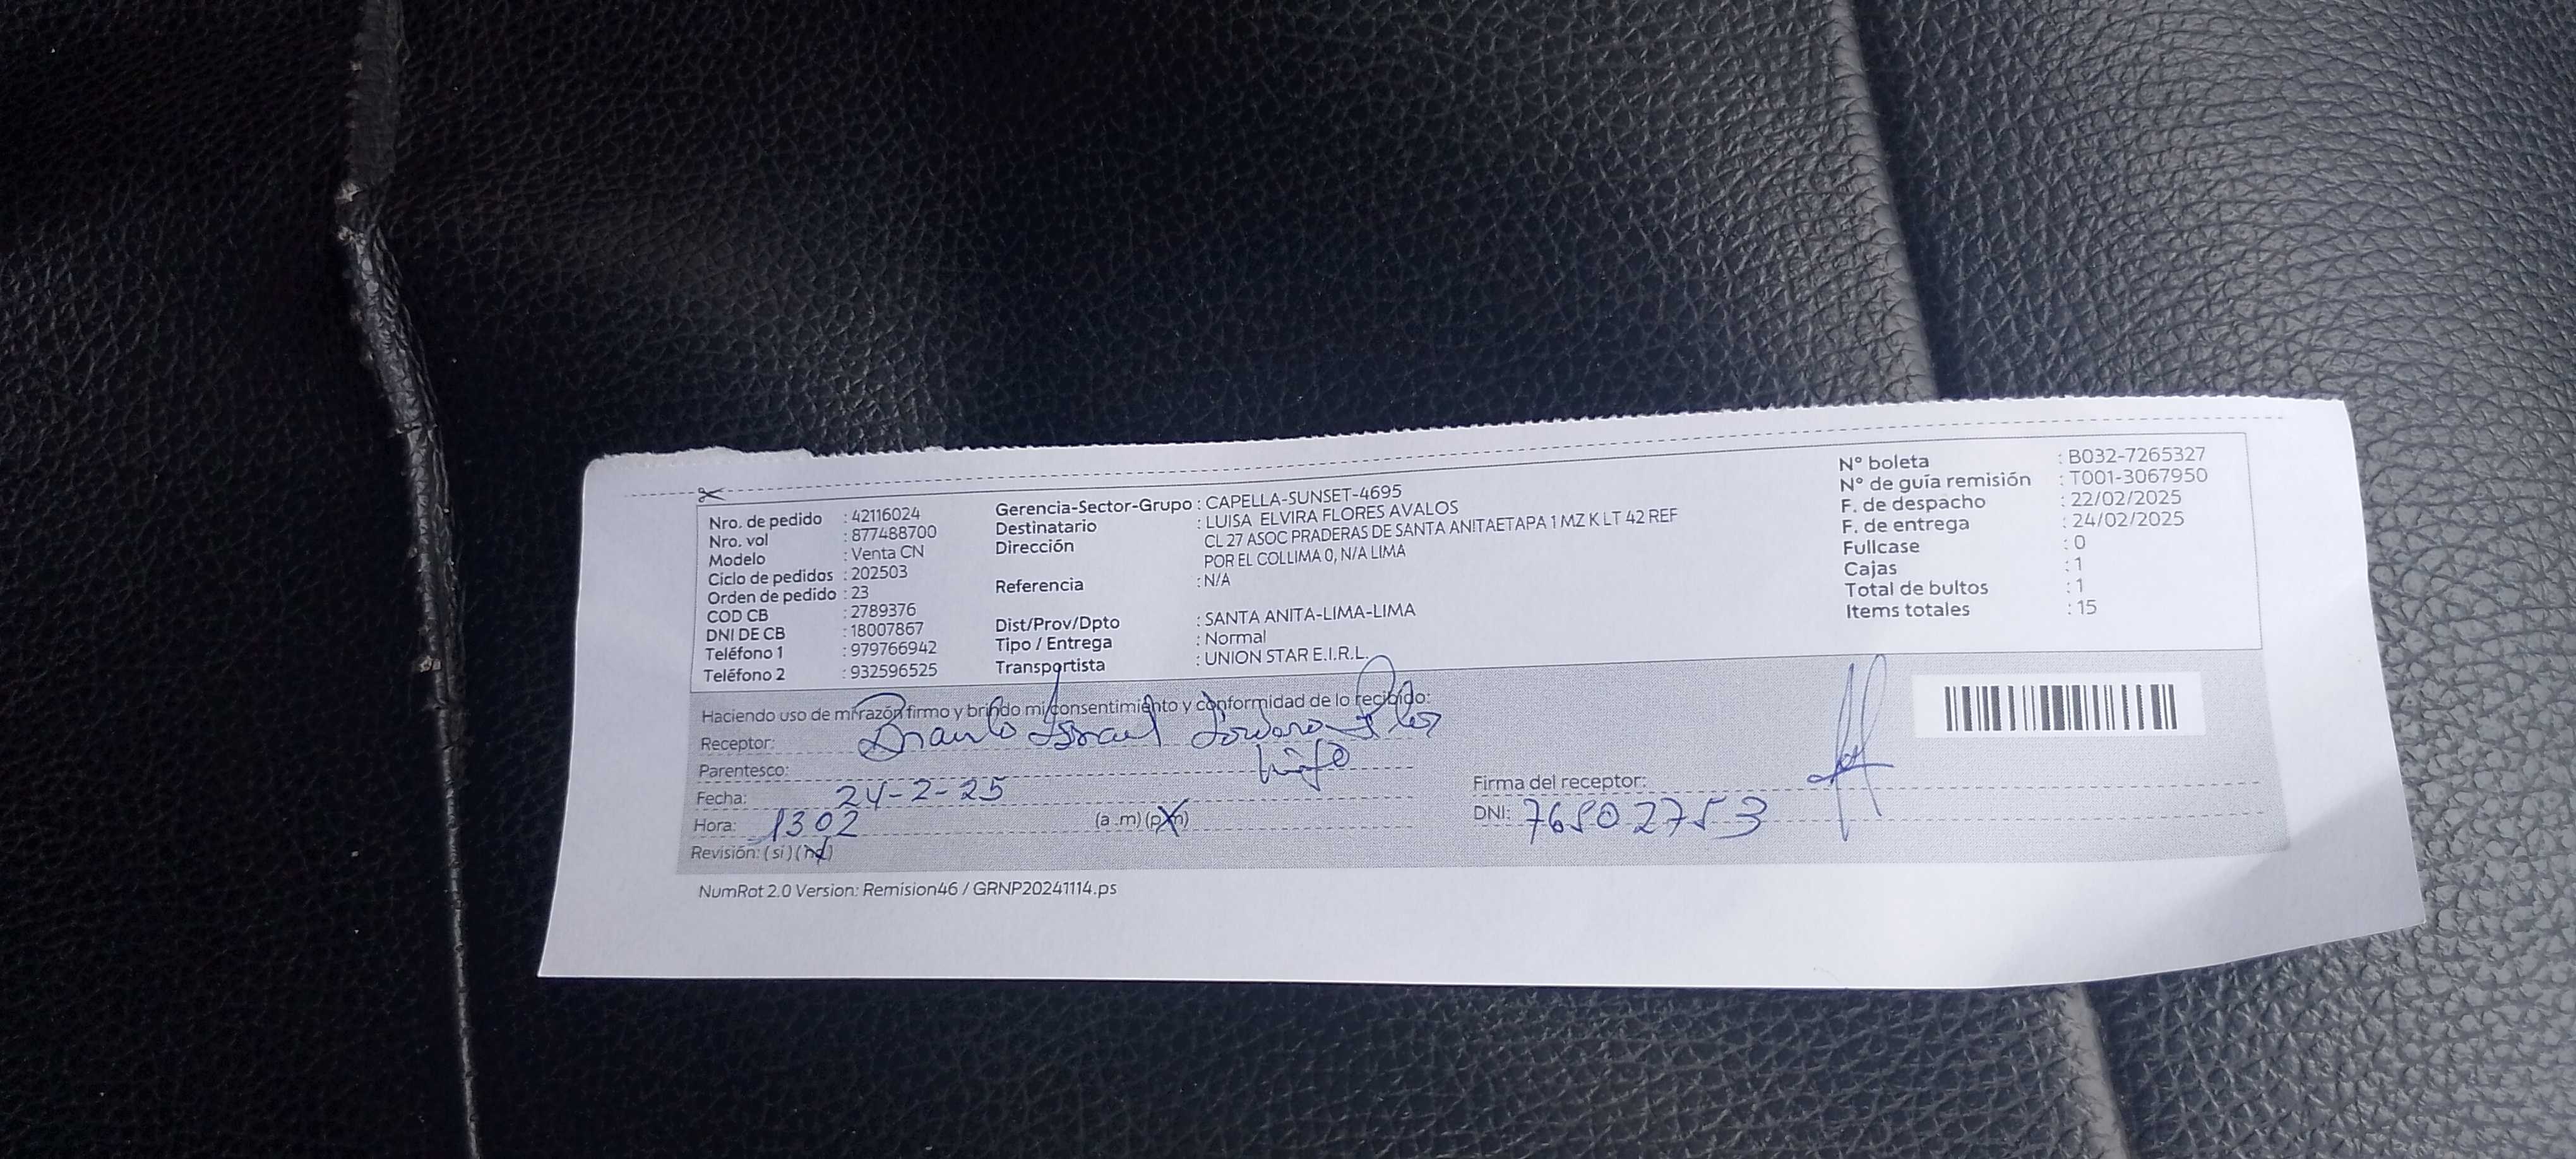 Nro. de pedido : 42116024
Nro. vol : 877488700
Modelo : Venta CN
Ciclo de pedidos : 202503
Orden de pedido : 23
COD CB : 2789376
DNI DE CB : 18007867
Teléfono 1 : 979766942
Teléfono 2 : 932596525
Gerencia-Sector-Grupo : CAPELLA-SUNSET-4695
Destinatario : LUISA ELVIRA FLORES AVALOS
Dirección CL 27 ASOC PRADERAS DE SANTA ANITAETAPA 1 MZ K LT 42 REF
POR EL COLLIMA 0, N/A LIMA
Referencia : N/A
Dist/Prov/Dpto : SANTA ANITA-LIMA-LIMA
Tipo / Entrega : Normal
Transportista : UNION STAR E.I.R.L.
N° boleta : B032-7265327
N° de guía remisión : T001-3067950
F. de despacho : 22/02/2025
F. de entrega : 24/02/2025
Fullcase : 0
Cajas : 1
Total de bultos : 1
Items totales : 15
Haciendo uso de mi razón firmo y brindo mi consentimiento y conformidad de lo recibido:
Receptor: Israel
Parentesco: hijo
Fecha: 24-2-25
Hora: 1302 (a .m) (p.m)
Revisión: (si) (no)
Firma del receptor:
DNI: 76502753
NumRot 2.0 Version: Remision46 / GRNP20241114.ps